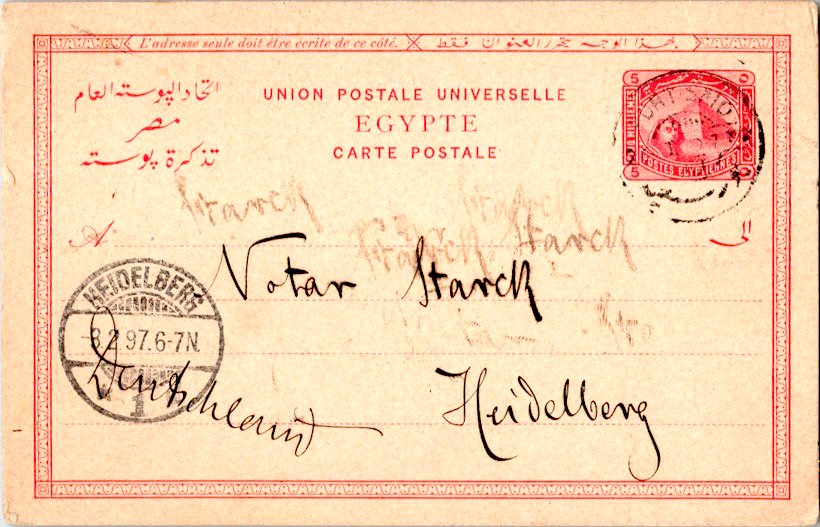 L'adresse seule doit être ecrite de ce côté. بهذا الوجه يحرر العنوان فقط
اتحاد البوسته العام
مصر
تذكرة بوسته
UNION POSTALE UNIVERSELLE
EGYPTE
CARTE POSTALE
5 5
POSTES EGYPTIENNES
5
PORT SAID
A
الى
Starck
Starck
Starck
Starck
Notar Starck
HEIDELBERG
8.2.97.6-7N.
1
Deutschland
Heidelberg